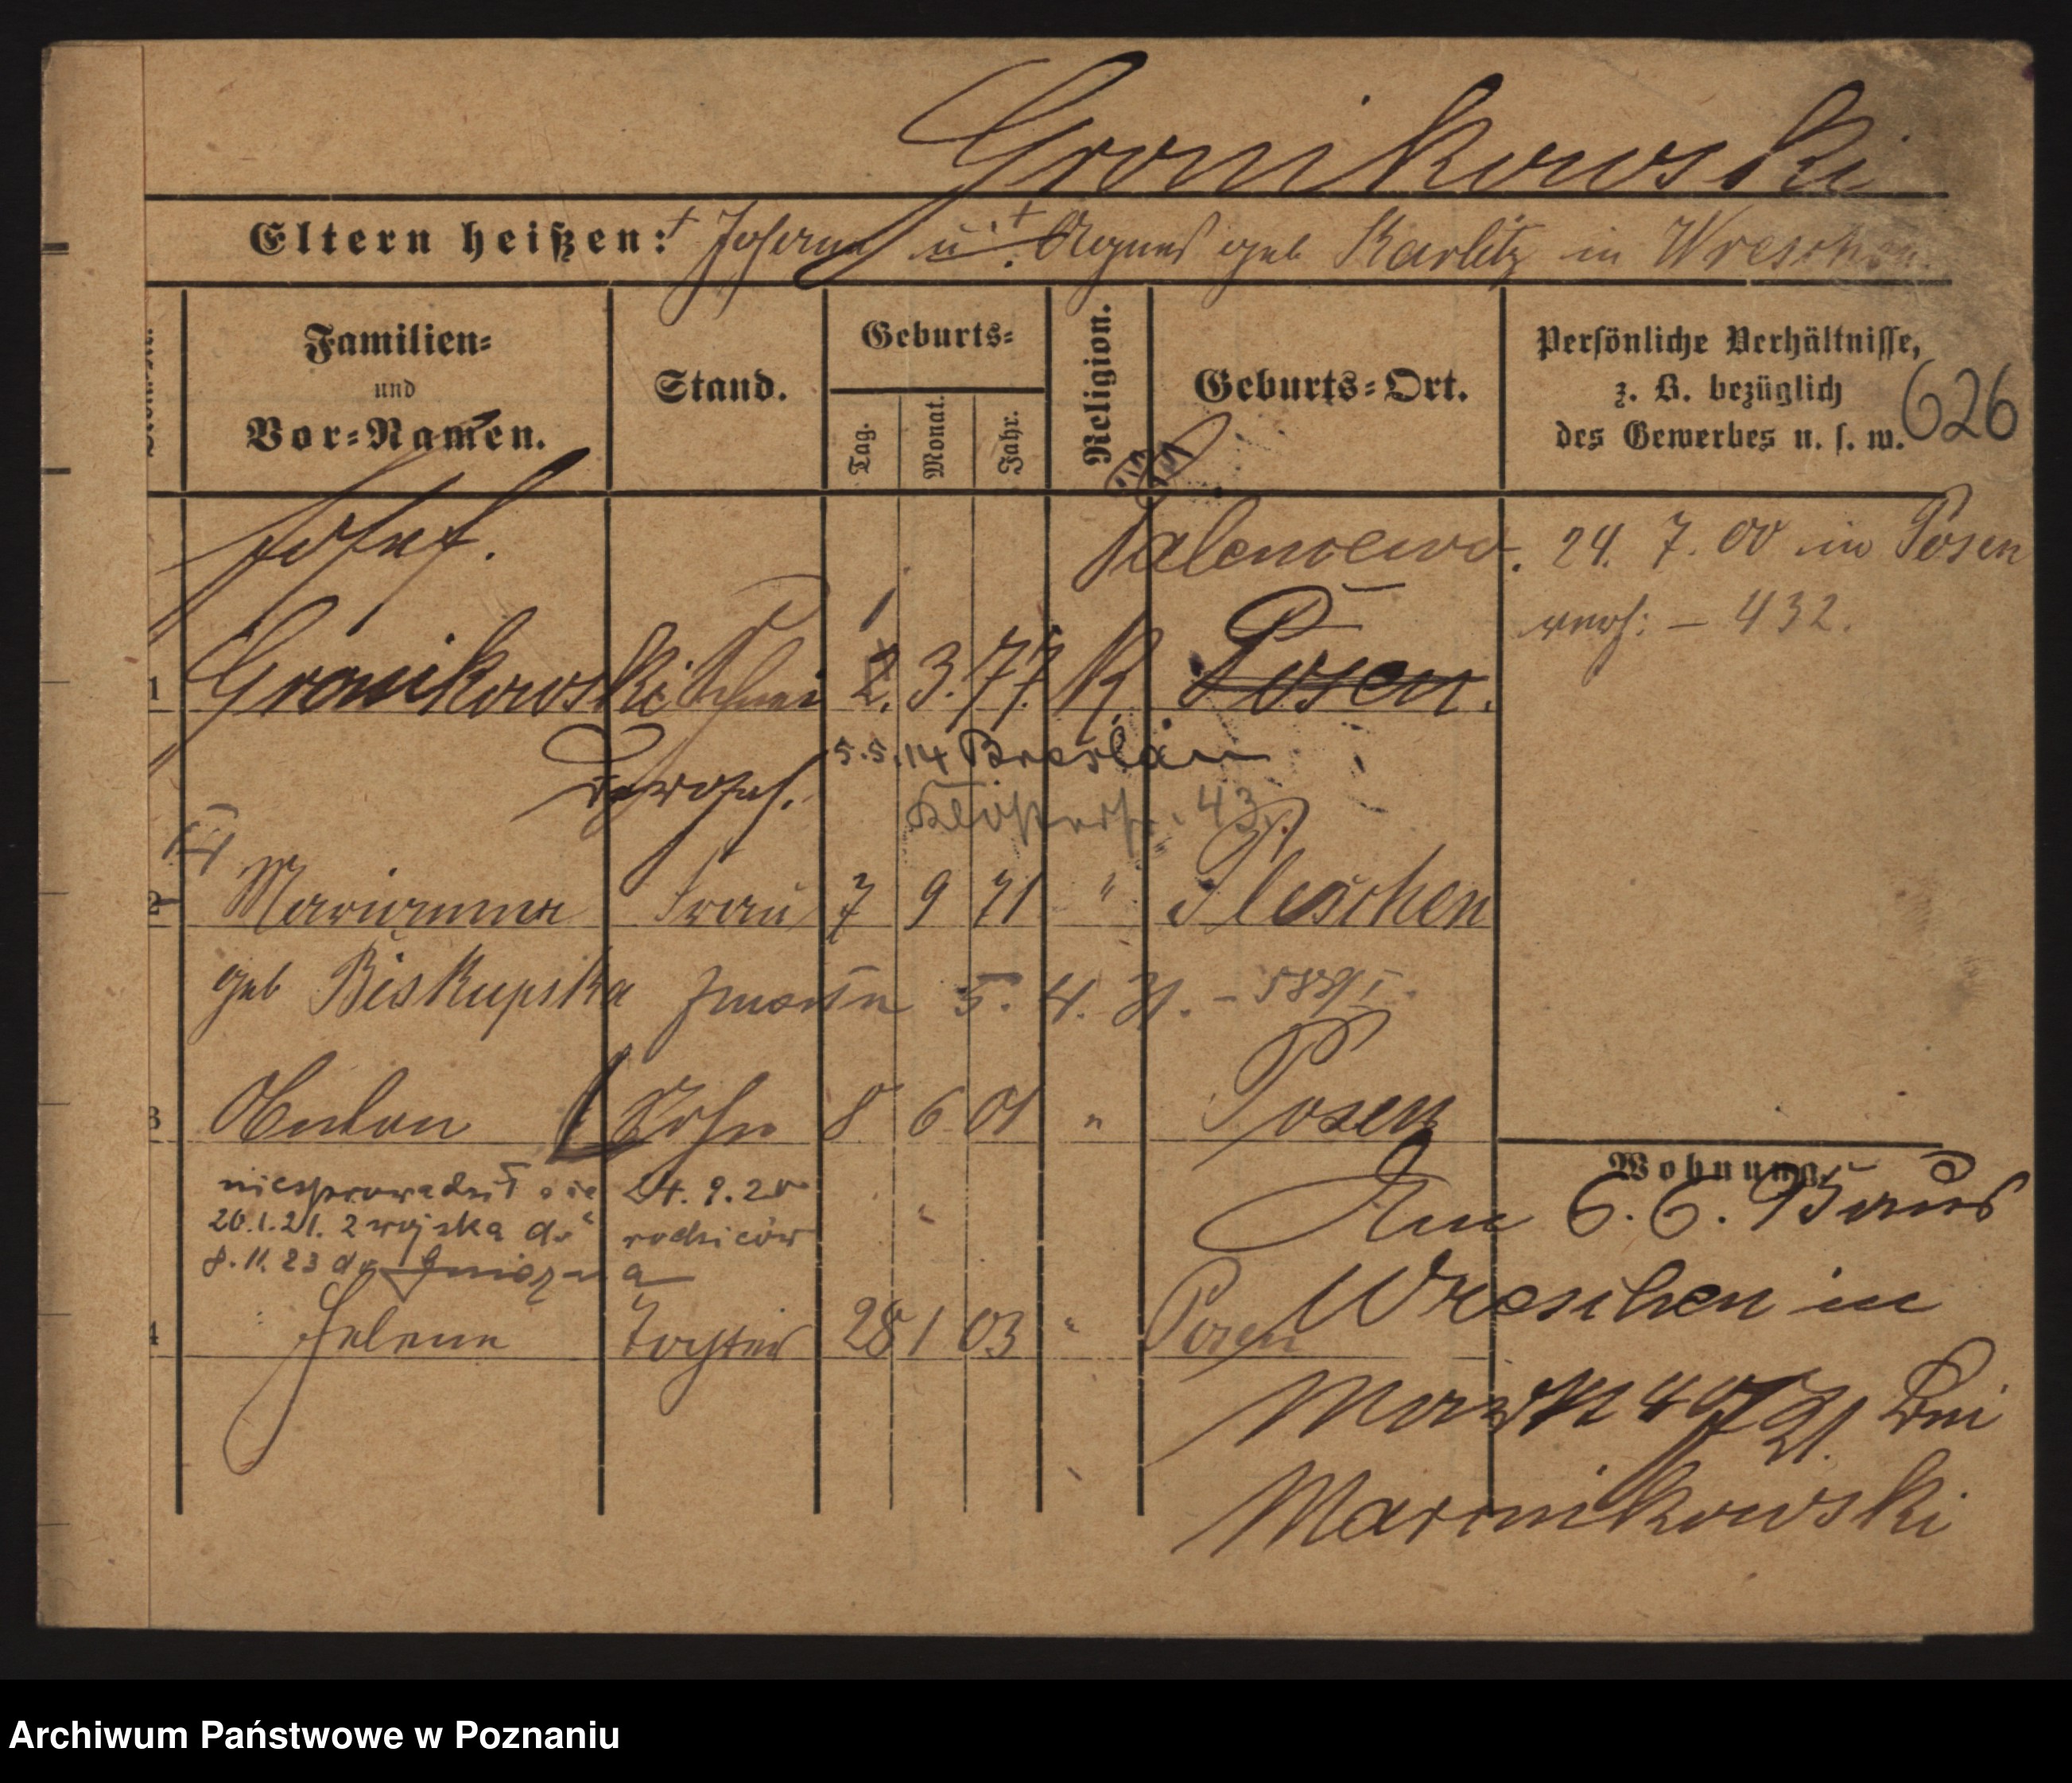 Gronikowski
Eltern heißen: † Johann u. † Agnes geb Karlitz in Wreschen.
Familien=
und
Vor=Namen.
Stand.
Geburts=
Tag.
Monat.
Jahr.
Religion.
Geburts=Ort.
Persönliche Verhältnisse,
z. B. bezüglich
des Gewerbes u. s. w.
626
Josef.
24. 7. 00 in Posen
verh: – 432.
1
1 Gronikowski Schnei 2. 3. 77. K. Posen.
5.5.14 Breslau
43.
2 Marianna Frau 7 9 71 " Pleschen
geb Biskupska zmarła 5. 4. 31.
3 Anton Sohn 8 6 01 " Posen
24. 9. 20
20.1.21. z wojska do rodziców
8.11.23 do Gniezna
4 Helene Tochter 28 1 03 " Posen
Wohnung.
Am 6. 6.
Wreschen in
Bei
Marcinkowski
Archiwum Państwowe w Poznaniu